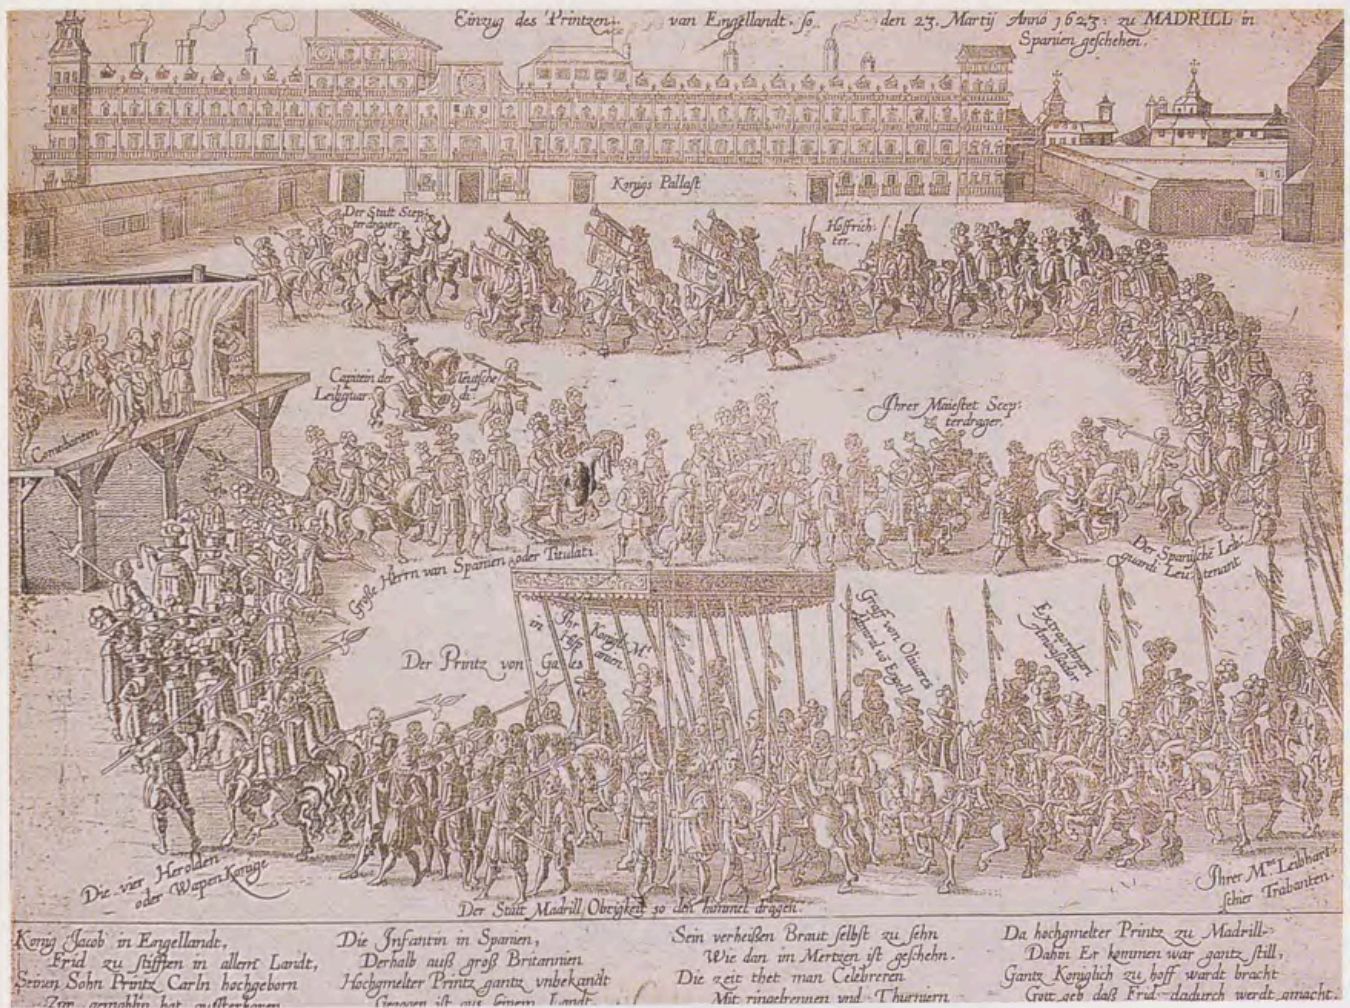 Einzug des Printzen van Engellandt, so den 23. Martij Anno 1623: zu MADRILL in
Spanien geschehen.
Konigs Pallast
Der Statt Scep:
terdrager.
Hoffrich:
ter.
Capitein der
Leibguar
Teutsche
di
Ihrer Maiestet Scep:
terdrager.
Comedianten
Große Herrn van Spanien oder Titulati
Der Spanische Leib
guardi Leutenant
Der Printz von Gales
Ihr Königl: Mt.
in Hispanien
Graff von Olivares
Extraordinari
Ambassador
Die vier Herolden
oder Wapen Konige
Der Statt Madrill Obrigkeit so den himmel dragen.
Ihrer Mtt. Leibhart:
schier Trabanten.
Konig Jacob in Engellandt,
Frid zu stifften in allem Landt,
Seinen Sohn Printz Carln hochgeborn
Zum gemahlin hat
Die Infantin in Spanien,
Derhalb auß groß Britannien
Hochgmelter Printz gantz unbekandt
ist aus seinem Landt
Sein verheißen Braut selbst zu sehn
Wie dan im Mertzen ist geschehn.
Die zeit thet man Celebreren
Mit ringelrennen vnd Thurniern
Da hochgmelter Printz zu Madrill
Dahin Er kommen war gantz still,
Gantz Koniglich zu hoff wardt bracht
Gott geb daß Frid dadurch werdt gmacht.